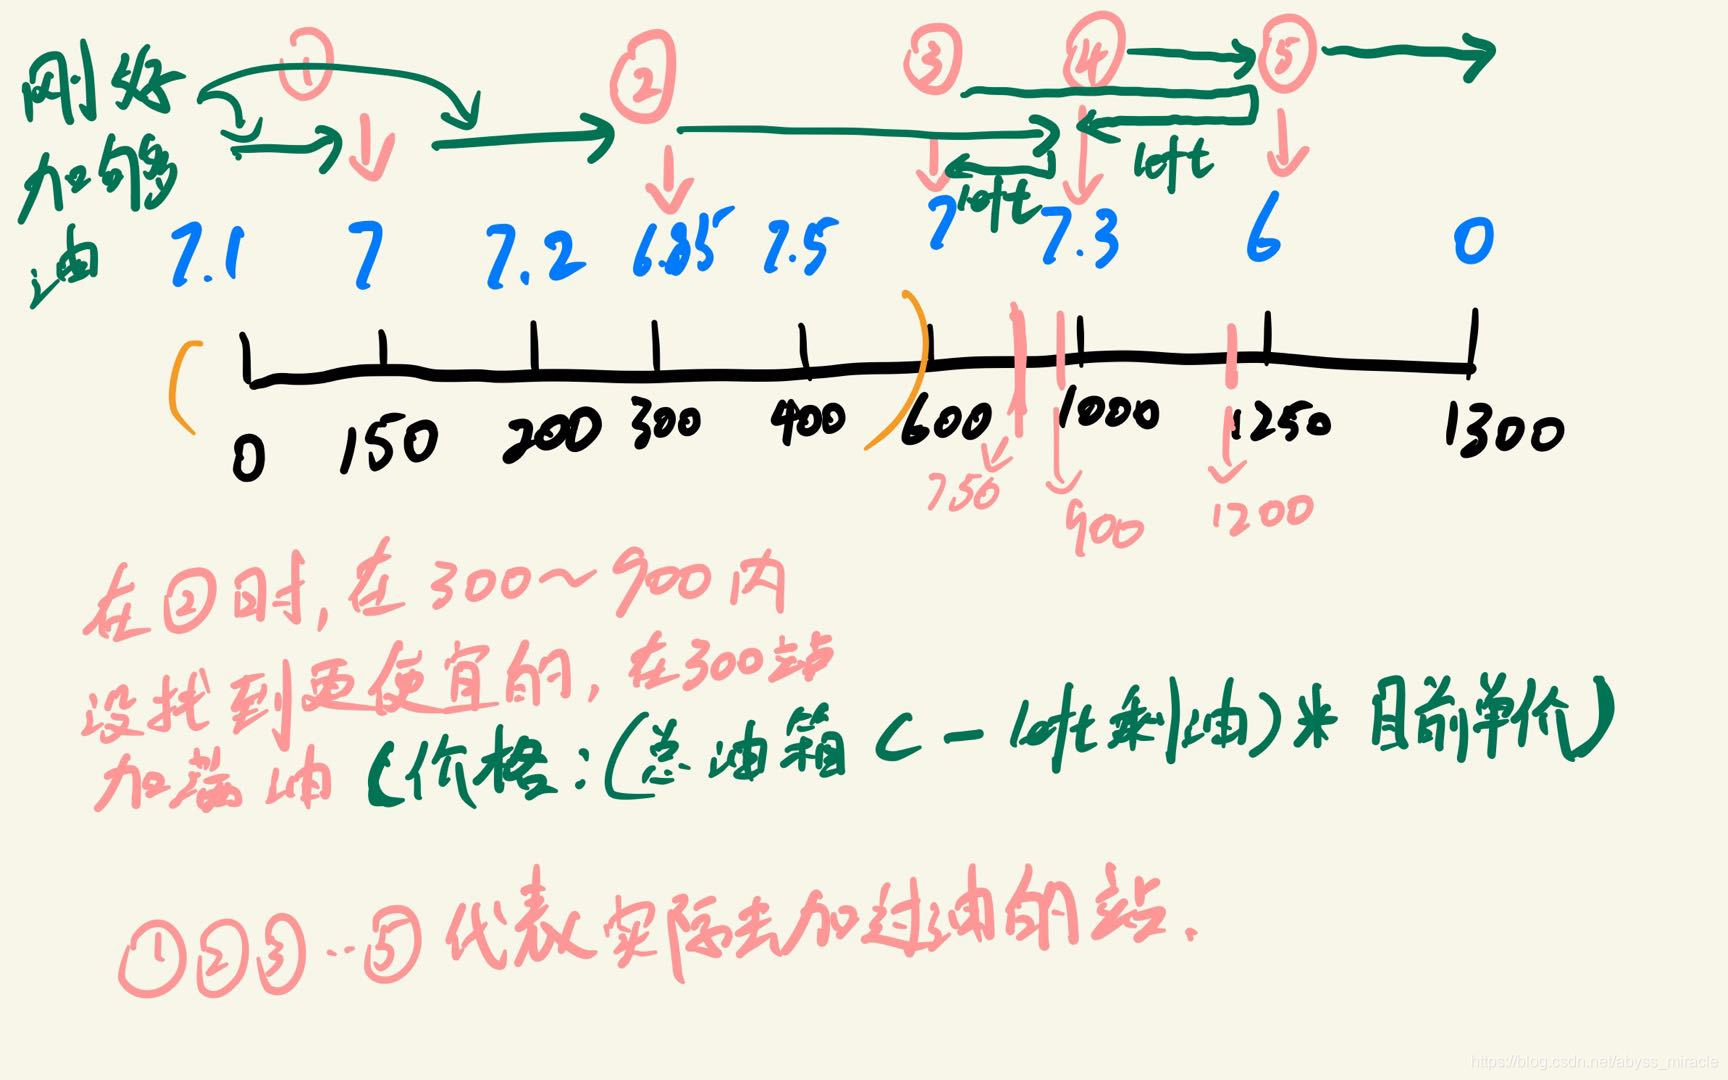 ① ② ③ ④ ⑤
刚好
加够
油
left left
7.1 7 7.2 6.85 7.5 7 7.3 6 0
0 150 200 300 400 600 1000 1250 1300
750 900 1200
在②时,在300~900内
没找到更便宜的,在300站
加满油(价格:(总油箱C-left剩油)*目前单价)
①②③..⑤代表实际去加过油的站.
https://blog.csdn.net/abyss_miracle